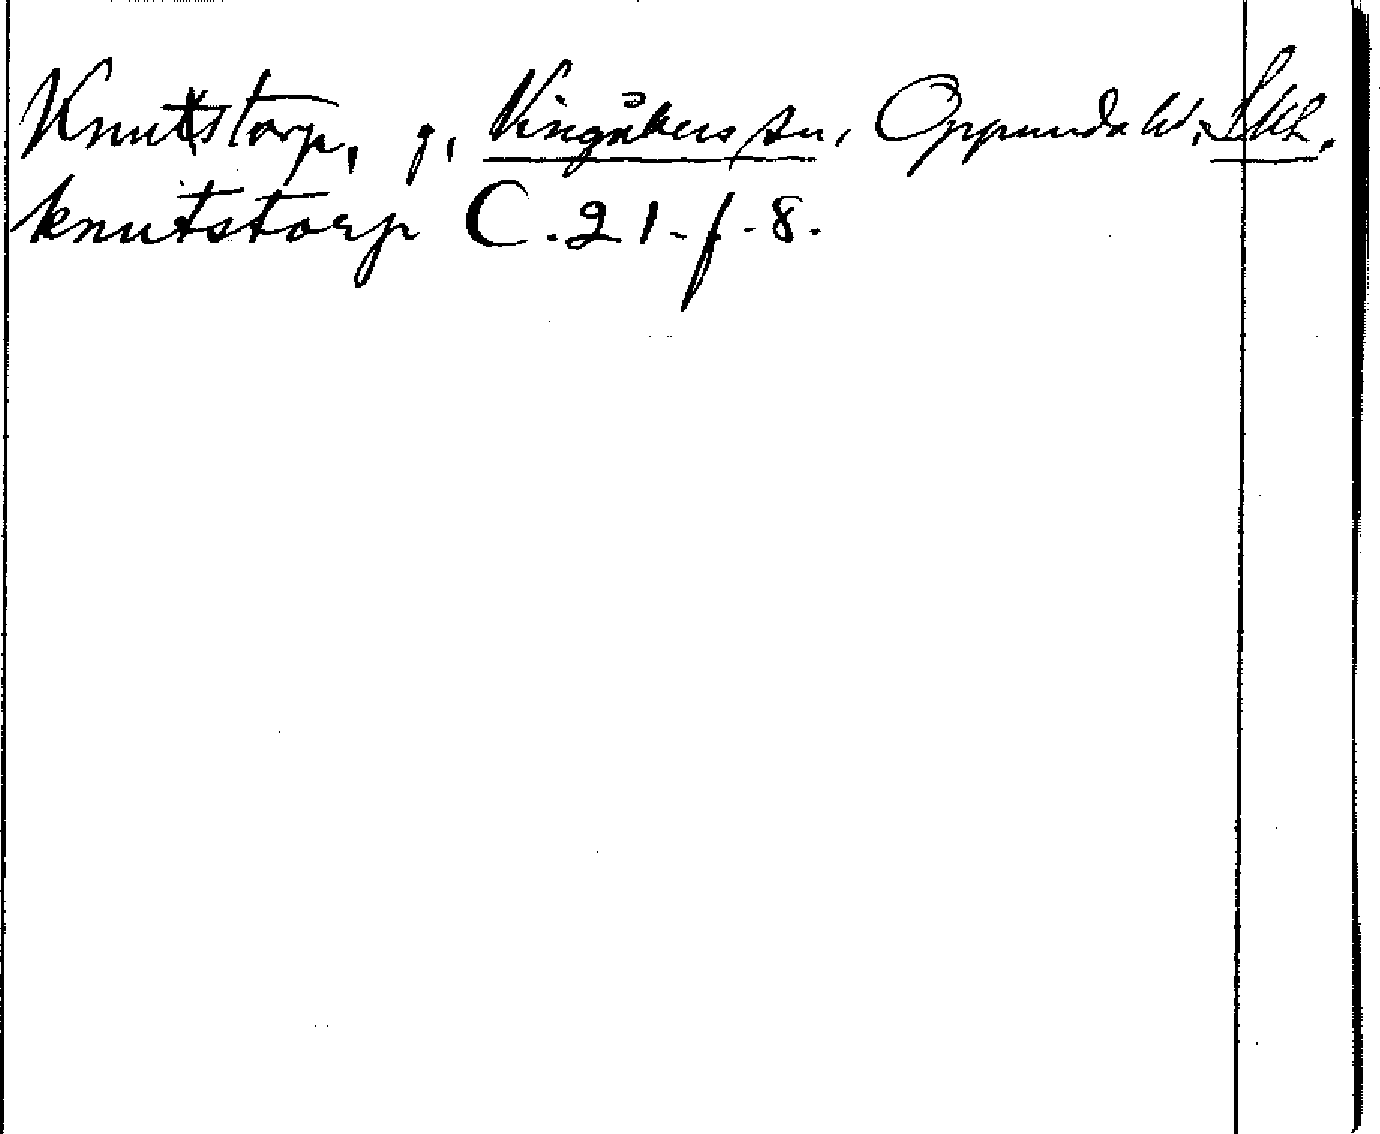 Knutstorp, g, Vingåkers sn, Oppunda hd, Södl.
knutstorp C. 21-f-8.